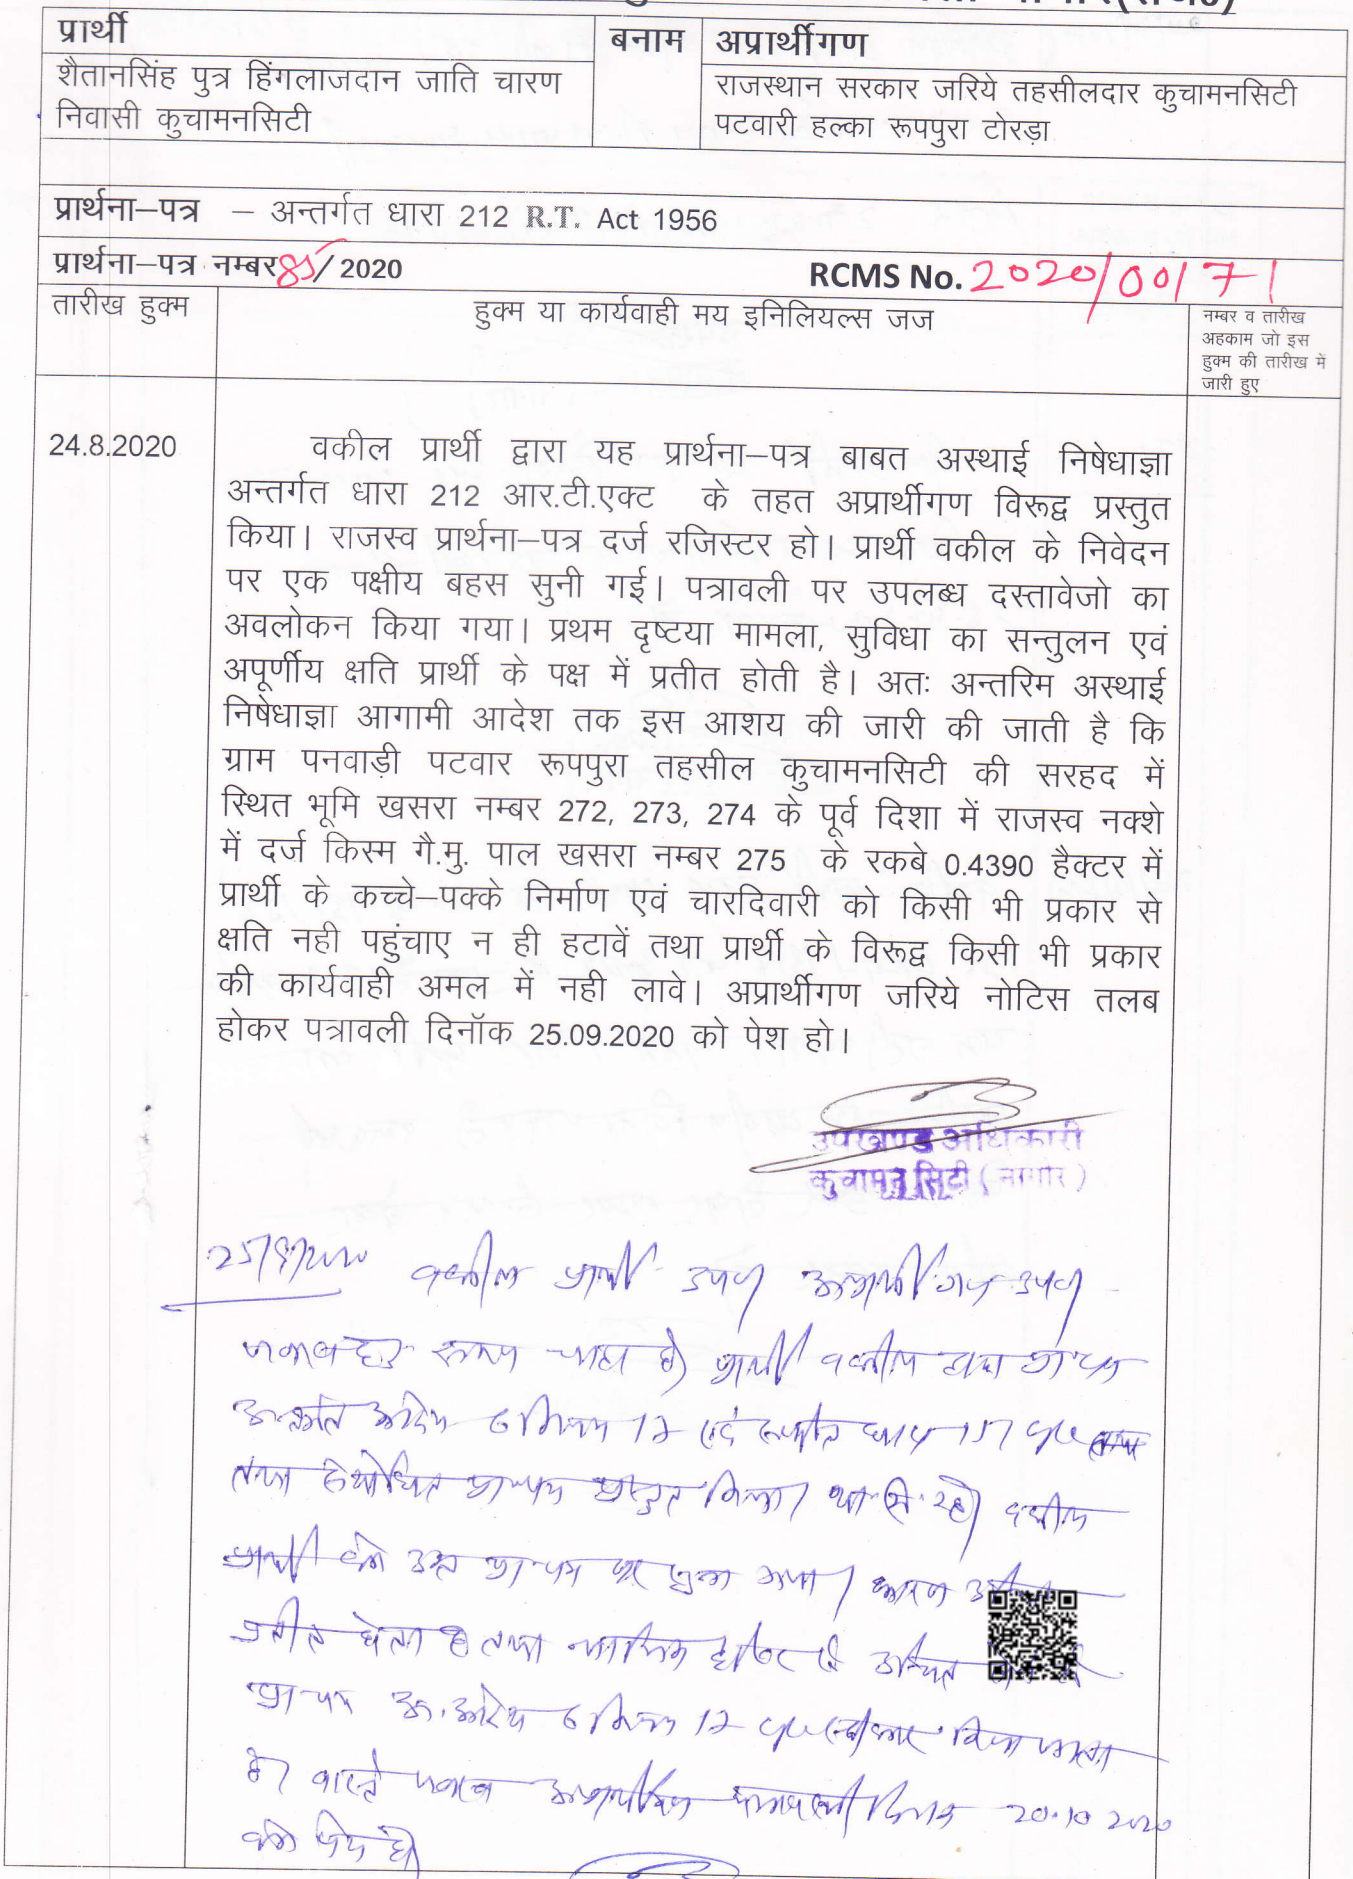 प्रार्थी
बनाम
अप्रार्थीगण
शैतानसिंह पुत्र हिंगलाजदान जाति चारण
निवासी कुचामनसिटी
राजस्थान सरकार जरिये तहसीलदार कुचामनसिटी
पटवारी हल्का रूपपुरा टोरड़ा
प्रार्थना–पत्र – अन्तर्गत धारा 212 R.T. Act 1956
प्रार्थना–पत्र नम्बर 85/2020
RCMS No. 2020/00171
तारीख हुक्म
हुक्म या कार्यवाही मय इनिलियल्स जज
नम्बर व तारीख
अहकाम जो इस
हुक्म की तारीख में
जारी हुए
24.8.2020
वकील प्रार्थी द्वारा यह प्रार्थना–पत्र बाबत अस्थाई निषेधाज्ञा
अन्तर्गत धारा 212 आर.टी.एक्ट के तहत अप्रार्थीगण विरूद्व प्रस्तुत
किया। राजस्व प्रार्थना–पत्र दर्ज रजिस्टर हो। प्रार्थी वकील के निवेदन
पर एक पक्षीय बहस सुनी गई। पत्रावली पर उपलब्ध दस्तावेजो का
अवलोकन किया गया। प्रथम दृष्टया मामला, सुविधा का सन्तुलन एवं
अपूर्णीय क्षति प्रार्थी के पक्ष में प्रतीत होती है। अतः अन्तरिम अस्थाई
निषेधाज्ञा आगामी आदेश तक इस आशय की जारी की जाती है कि
ग्राम पनवाड़ी पटवार रूपपुरा तहसील कुचामनसिटी की सरहद में
स्थित भूमि खसरा नम्बर 272, 273, 274 के पूर्व दिशा में राजस्व नक्शे
में दर्ज किस्म गै.मु. पाल खसरा नम्बर 275 के रकबे 0.4390 हैक्टर में
प्रार्थी के कच्चे–पक्के निर्माण एवं चारदिवारी को किसी भी प्रकार से
क्षति नही पहुंचाए न ही हटावें तथा प्रार्थी के विरूद्व किसी भी प्रकार
की कार्यवाही अमल में नही लावे। अप्रार्थीगण जरिये नोटिस तलब
होकर पत्रावली दिनॉक 25.09.2020 को पेश हो।
उपखण्ड अधिकारी
कुचामन सिटी (नागौर)
25/9/2020 वकील प्रार्थी उप० अप्रार्थीगण उप०
समय चाहा है। प्रार्थी वकील द्वारा
आदेश 6 नियम 17 एवं धारा 151
तथा संशोधित प्रस्तुत किया। वकील
प्रार्थी को उक्त पर सुना गया। कारण
प्रतीत होता है तथा न्यायिक दृष्टि से उचित
आदेश 6 नियम 17 स्वीकार किया जाता
है। वास्ते जवाब दिनांक 20.10.2020
को पेश हो